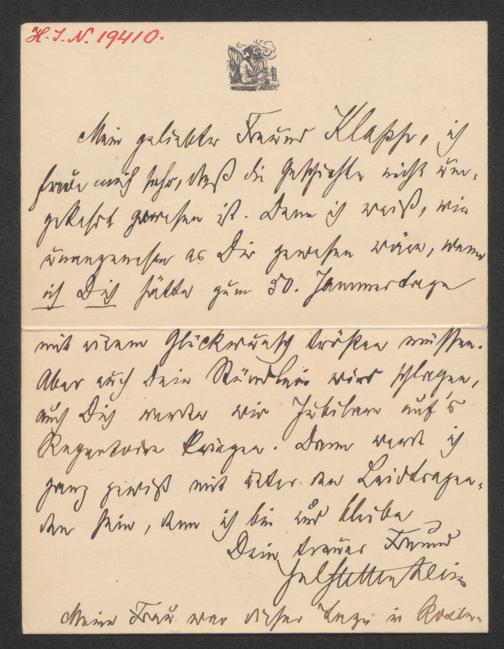 H. I. N. 19410.
Mein geliebter Freund Klapp, ich
freue mich sehr, daß die Geschichte nicht um-
gekehrt gewesen ist. Denn ich weiß, wie
unangenehm es Dir gewesen wäre, wenn
ich Dich hätte zum 50. Jammertage
mit einem Glückwunsch trösten müssen.
Aber auch Dein Stündlein wird schlagen,
auch Dich werden wir Jubilare auf's
Repertoire kriegen. Dann werd ich
ganz gewiß mit unter den Leidtragen-
den sein, denn ich bin und bleibe
Dein treuer Freund
Meine Frau war dieser Tage in